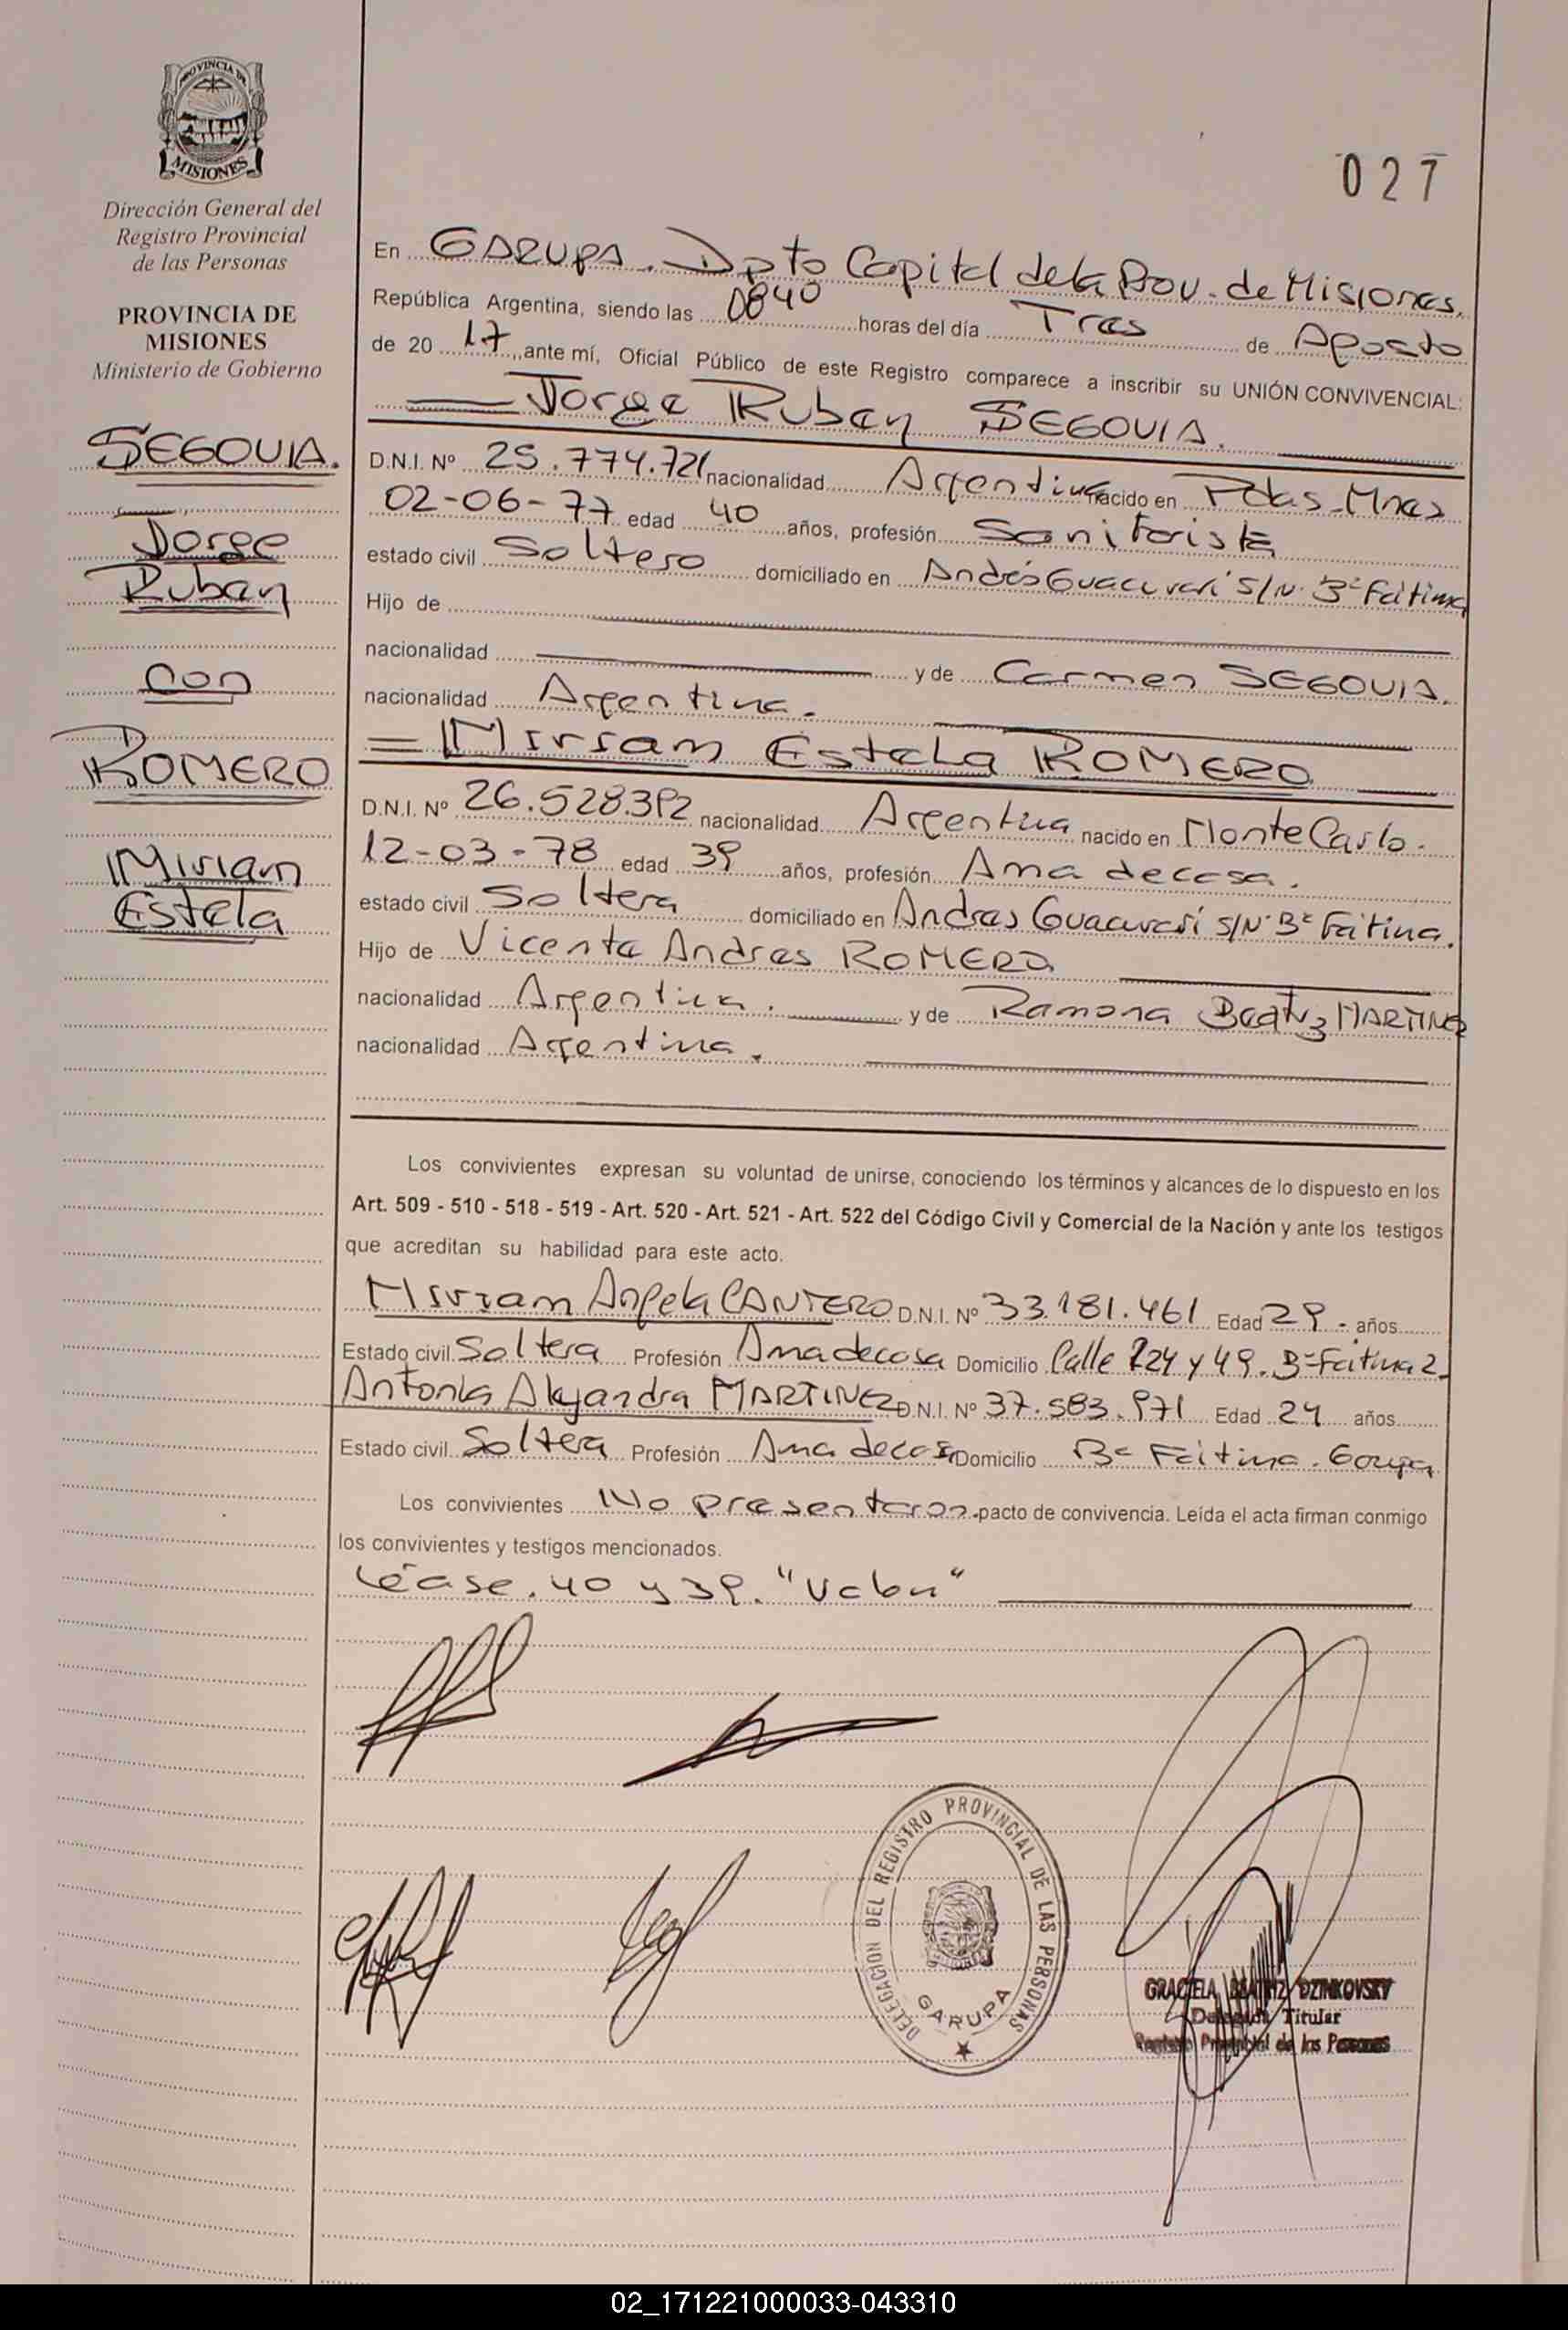 PROVINCIA DE
MISIONES
Dirección General del
Registro Provincial
de las Personas
PROVINCIA DE
MISIONES
Ministerio de Gobierno
SEGOVIA.
Jorge
Ruben
con
ROMERO
Miriam
Estela
027
En GARUPA. Dpto Capital de la Prov. de Misiones.
República Argentina, siendo las 0840 horas del día Tres de Agosto
de 20 17, ante mí, Oficial Público de este Registro comparece a inscribir su UNIÓN CONVIVENCIAL:
Jorge Ruben SEGOVIA.
D.N.I. Nº 25.774.721 nacionalidad Argentina nacido en Pdas. Mnes
02-06-77 edad 40 años, profesión Sanitarista
estado civil Soltero domiciliado en Andrés Guacurarí S/N. Bº Fátima
Hijo de
nacionalidad y de Carmen SEGOVIA.
nacionalidad Argentina.
Miriam Estela ROMERO
D.N.I. Nº 26.528.392 nacionalidad Argentina nacido en Monte Carlo.
12-03-78 edad 39 años, profesión Ama de casa.
estado civil Soltera domiciliado en Andres Guacurarí S/N. Bº Fátima.
Hijo de Vicente Andres ROMERO
nacionalidad Argentina. y de Ramona Beatriz MARTINEZ
nacionalidad Argentina.
Los convivientes expresan su voluntad de unirse, conociendo los términos y alcances de lo dispuesto en los
Art. 509 - 510 - 518 - 519 - Art. 520 - Art. 521 - Art. 522 del Código Civil y Comercial de la Nación y ante los testigos
que acreditan su habilidad para este acto.
Miriam Angela CANTERO D.N.I. Nº 33.181.461 Edad 29 - años
Estado civil Soltera Profesión Ama de casa Domicilio Calle 224 y 49. Bº Fátima 2.
Antonia Alejandra MARTINEZ D.N.I. Nº 37.583.971 Edad 24 años
Estado civil Soltera Profesión Ama de casa Domicilio Bº Fátima. Garupa
Los convivientes No presentaron. pacto de convivencia. Leída el acta firman conmigo
los convivientes y testigos mencionados.
Léase. 40 y 39. "Valen"
DELEGACION DEL REGISTRO PROVINCIAL DE LAS PERSONAS
GARUPA
GRACIELA BEATRIZ DZINKOVSKY
Delegada Titular
Registro Provincial de las Personas
02_171221000033-043310